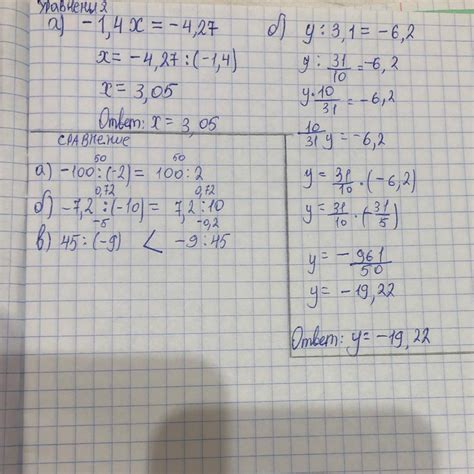 Уравнения
а) -1,4x = -4,27
x = -4,27 : (-1,4)
x = 3,05
Ответ: x = 3,05
б) y : 3,1 = -6,2
y : 31/10 = -6,2
y · 10/31 = -6,2
10/31 y = -6,2
y = 31/10 · (-6,2)
y = 31/10 · (-31/5)
y = -961/50
y = -19,22
Ответ: y = -19,22
сравнение
50 50
а) -100 : (-2) = 100 : 2
0,72 0,72
б) -7,2 : (-10) = 7,2 : 10
-5 -0,2
в) 45 : (-9) < -9 : 45